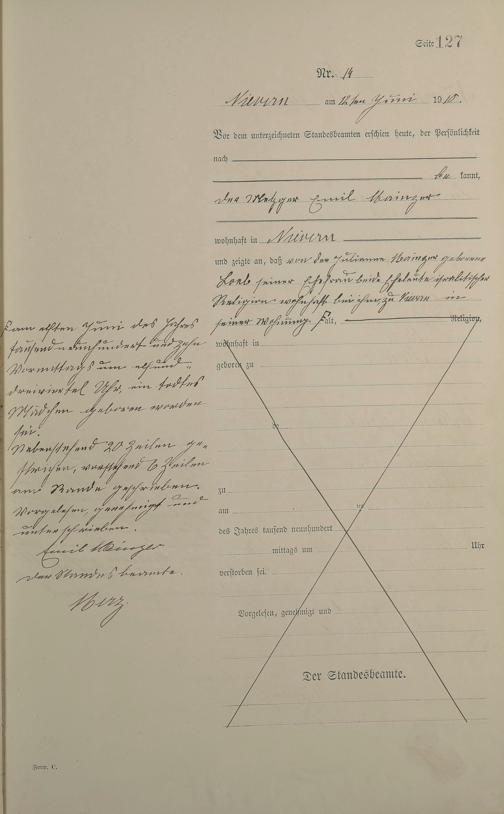 Seite 127
Nr. 14
Nievern am 12ten Juni 1910.
Vor dem unterzeichneten Standesbeamten erschien heute, der Persönlichkeit
nach
be kannt,
der Metzger Emil Mainzer
wohnhaft in Nievern
und zeigte an, daß von der Julianne Mainzer geborene
Loeb seiner Ehefrau beide Eheleute israelitischer
Religion wohnhaft bei ihm, zu Nievern in
seiner Wohnung F alt, Religion,
wohnhaft in
geboren zu
zu
am
des Jahres tausend neunhundert
mittags um Uhr
verstorben sei.
Vorgelesen, genehmigt und
Der Standesbeamte.
F am elften Juni des Jahres
tausend neunhundert und zehn
Vormittags um elf und
dreiviertel Uhr, ein todtes
Mädchen geboren worden
sei.
Nebenstehend 20 Zeilen ge-
strichen, vorstehend 6 Zeilen
am Rande geschrieben.
Vorgelesen, genehmigt und
unterschrieben.
Emil Mainzer
Der Standesbeamte.
Merz
Form. C.